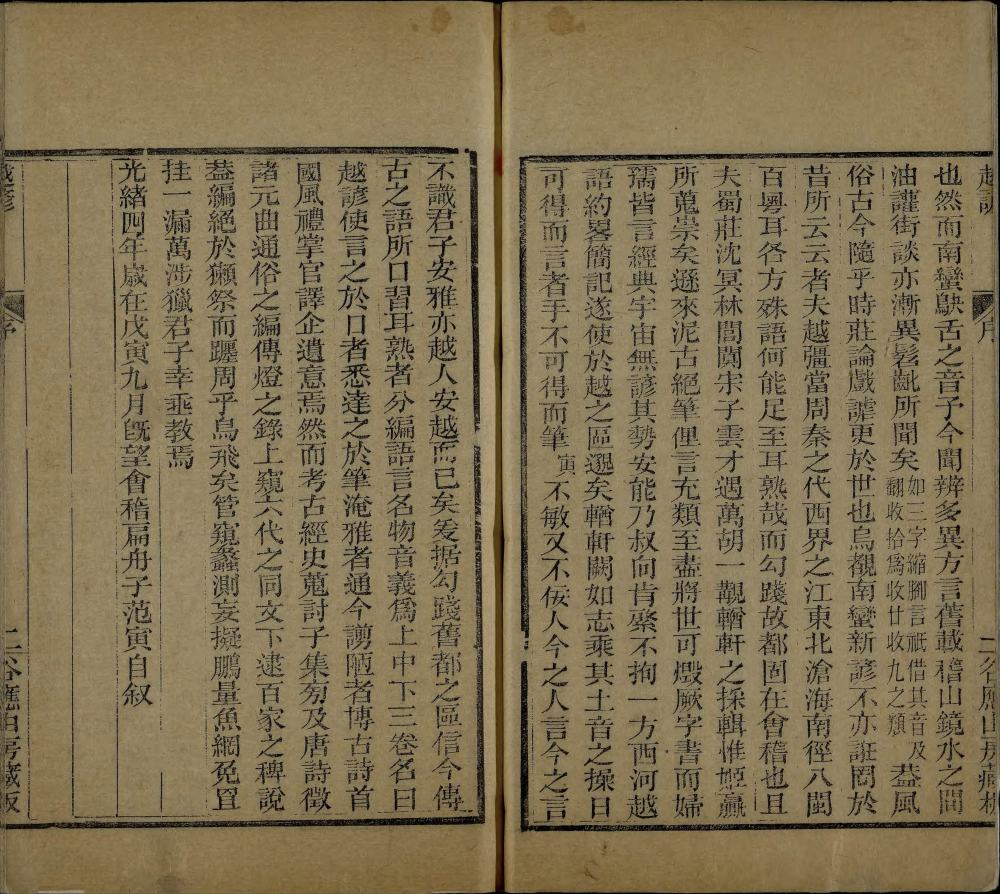 越諺
序
二谷應山房藏板
也然而南蠻鴃舌之音予今聞辨多異方言舊載稽山鏡水之間
油讙街談亦漸異髫齔所聞矣如三字縮腳言祇借其音及翻收拾爲收廿收九之類葢風
俗古今隨乎時莊論戲謔更於世也烏覩南蠻新諺不亦誑罔於
昔所云云者夫越彊當周秦之代西界之江東北滄海南徑八閩
百粵耳各方殊語何能足至耳熟哉而勾踐故都固在會稽也且
夫蜀莊沈冥林閭閴宋子雲才遇萬胡一觀輶軒之採輯惟姬嬴
所蒐祟矣遜來泥古絕筆俚言充類至盡將世可燬厥字書而婦
孺皆言經典宇宙無諺其勢安能乃叔向肯檠不拘一方西河越
語約畧簡記遂使於越之區邈矣輶軒闕如志乘其土音之操日
可得而言者手不可得而筆寅不敏又不佞人今之人言今之言
不識君子安雅亦越人安越而已矣爰据勾踐舊都之區信今傳
古之語所口習耳熟者分編語言名物音義爲上中下三卷名曰
越諺使言之於口者悉達之於筆淹雅者通今謭陋者博古詩首
國風禮掌官譯企遺意焉然而考古經史蒐討子集匇及唐詩徵
諸元曲通俗之編傳燈之錄上窺六代之同文下逮百家之稗說
葢編絕於獺祭而躧周乎鳥飛矣管窺蠡測妄擬鵬量魚網兔罝
挂一漏萬涉獵君子幸垂教焉
光緒四年歲在戊寅九月旣望會稽扁舟子范寅自叙
越諺
序
二谷應山房藏板